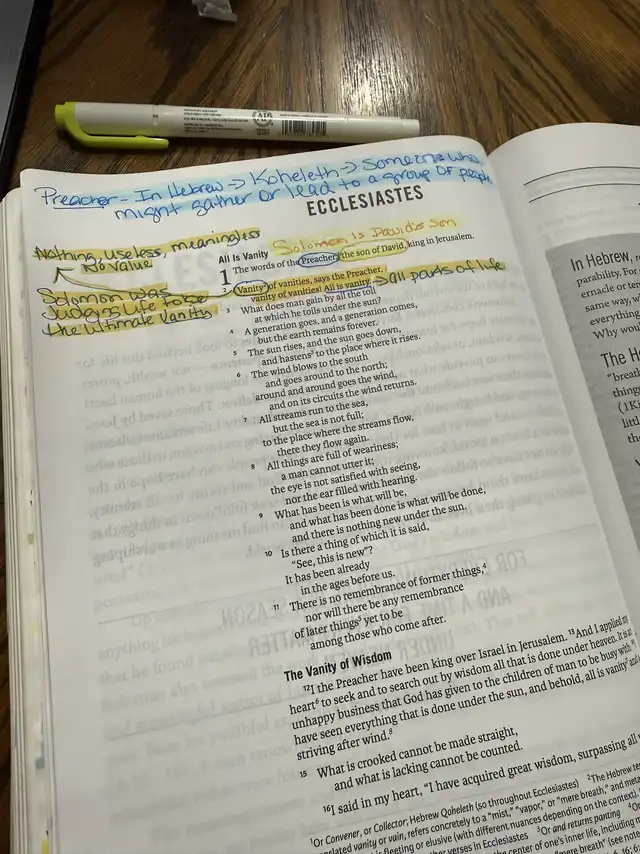 Preacher - In Hebrew -> Koheleth -> someone who
might gather or lead to a group of people
ECCLESIASTES
Nothing, useless, meaningless
No value
Solomon Is David's son
Solomon was
Judging life to be
the ultimate Vanity
-> all parts of life
All Is Vanity
1 The words of the Preacher, the son of David, king in Jerusalem.
2 Vanity of vanities, says the Preacher,
vanity of vanities! All is vanity.
3 What does man gain by all the toil
at which he toils under the sun?
4 A generation goes, and a generation comes,
but the earth remains forever.
5 The sun rises, and the sun goes down,
and hastens to the place where it rises.
6 The wind blows to the south
and goes around to the north;
around and around goes the wind,
and on its circuits the wind returns.
7 All streams run to the sea,
but the sea is not full;
to the place where the streams flow,
there they flow again.
8 All things are full of weariness;
a man cannot utter it;
the eye is not satisfied with seeing,
nor the ear filled with hearing.
9 What has been is what will be,
and what has been done is what will be done,
and there is nothing new under the sun.
10 Is there a thing of which it is said,
"See, this is new"?
It has been already
in the ages before us.
11 There is no remembrance of former things,4
nor will there be any remembrance
of later things5 yet to be
among those who come after.
The Vanity of Wisdom
12 I the Preacher have been king over Israel in Jerusalem. 13 And I applied my
heart6 to seek and to search out by wisdom all that is done under heaven. It is an
unhappy business that God has given to the children of man to be busy with.
have seen everything that is done under the sun, and behold, all is vanity and a
striving after wind.8
15 What is crooked cannot be made straight,
and what is lacking cannot be counted.
16 I said in my heart, "I have acquired great wisdom, surpassing all
1Or Convener, or Collector; Hebrew Qoheleth (so throughout Ecclesiastes) 2The Hebrew te
vanity or vain, refers concretely to a "mist," "vapor," or "mere breath," and meta
fleeting or elusive (with different nuances depending on the context).
3Or and returns panting
In Hebrew,
parability. For
ernacle or te
same way,
everything
Why wo
The H
"breat
things
(1Ki